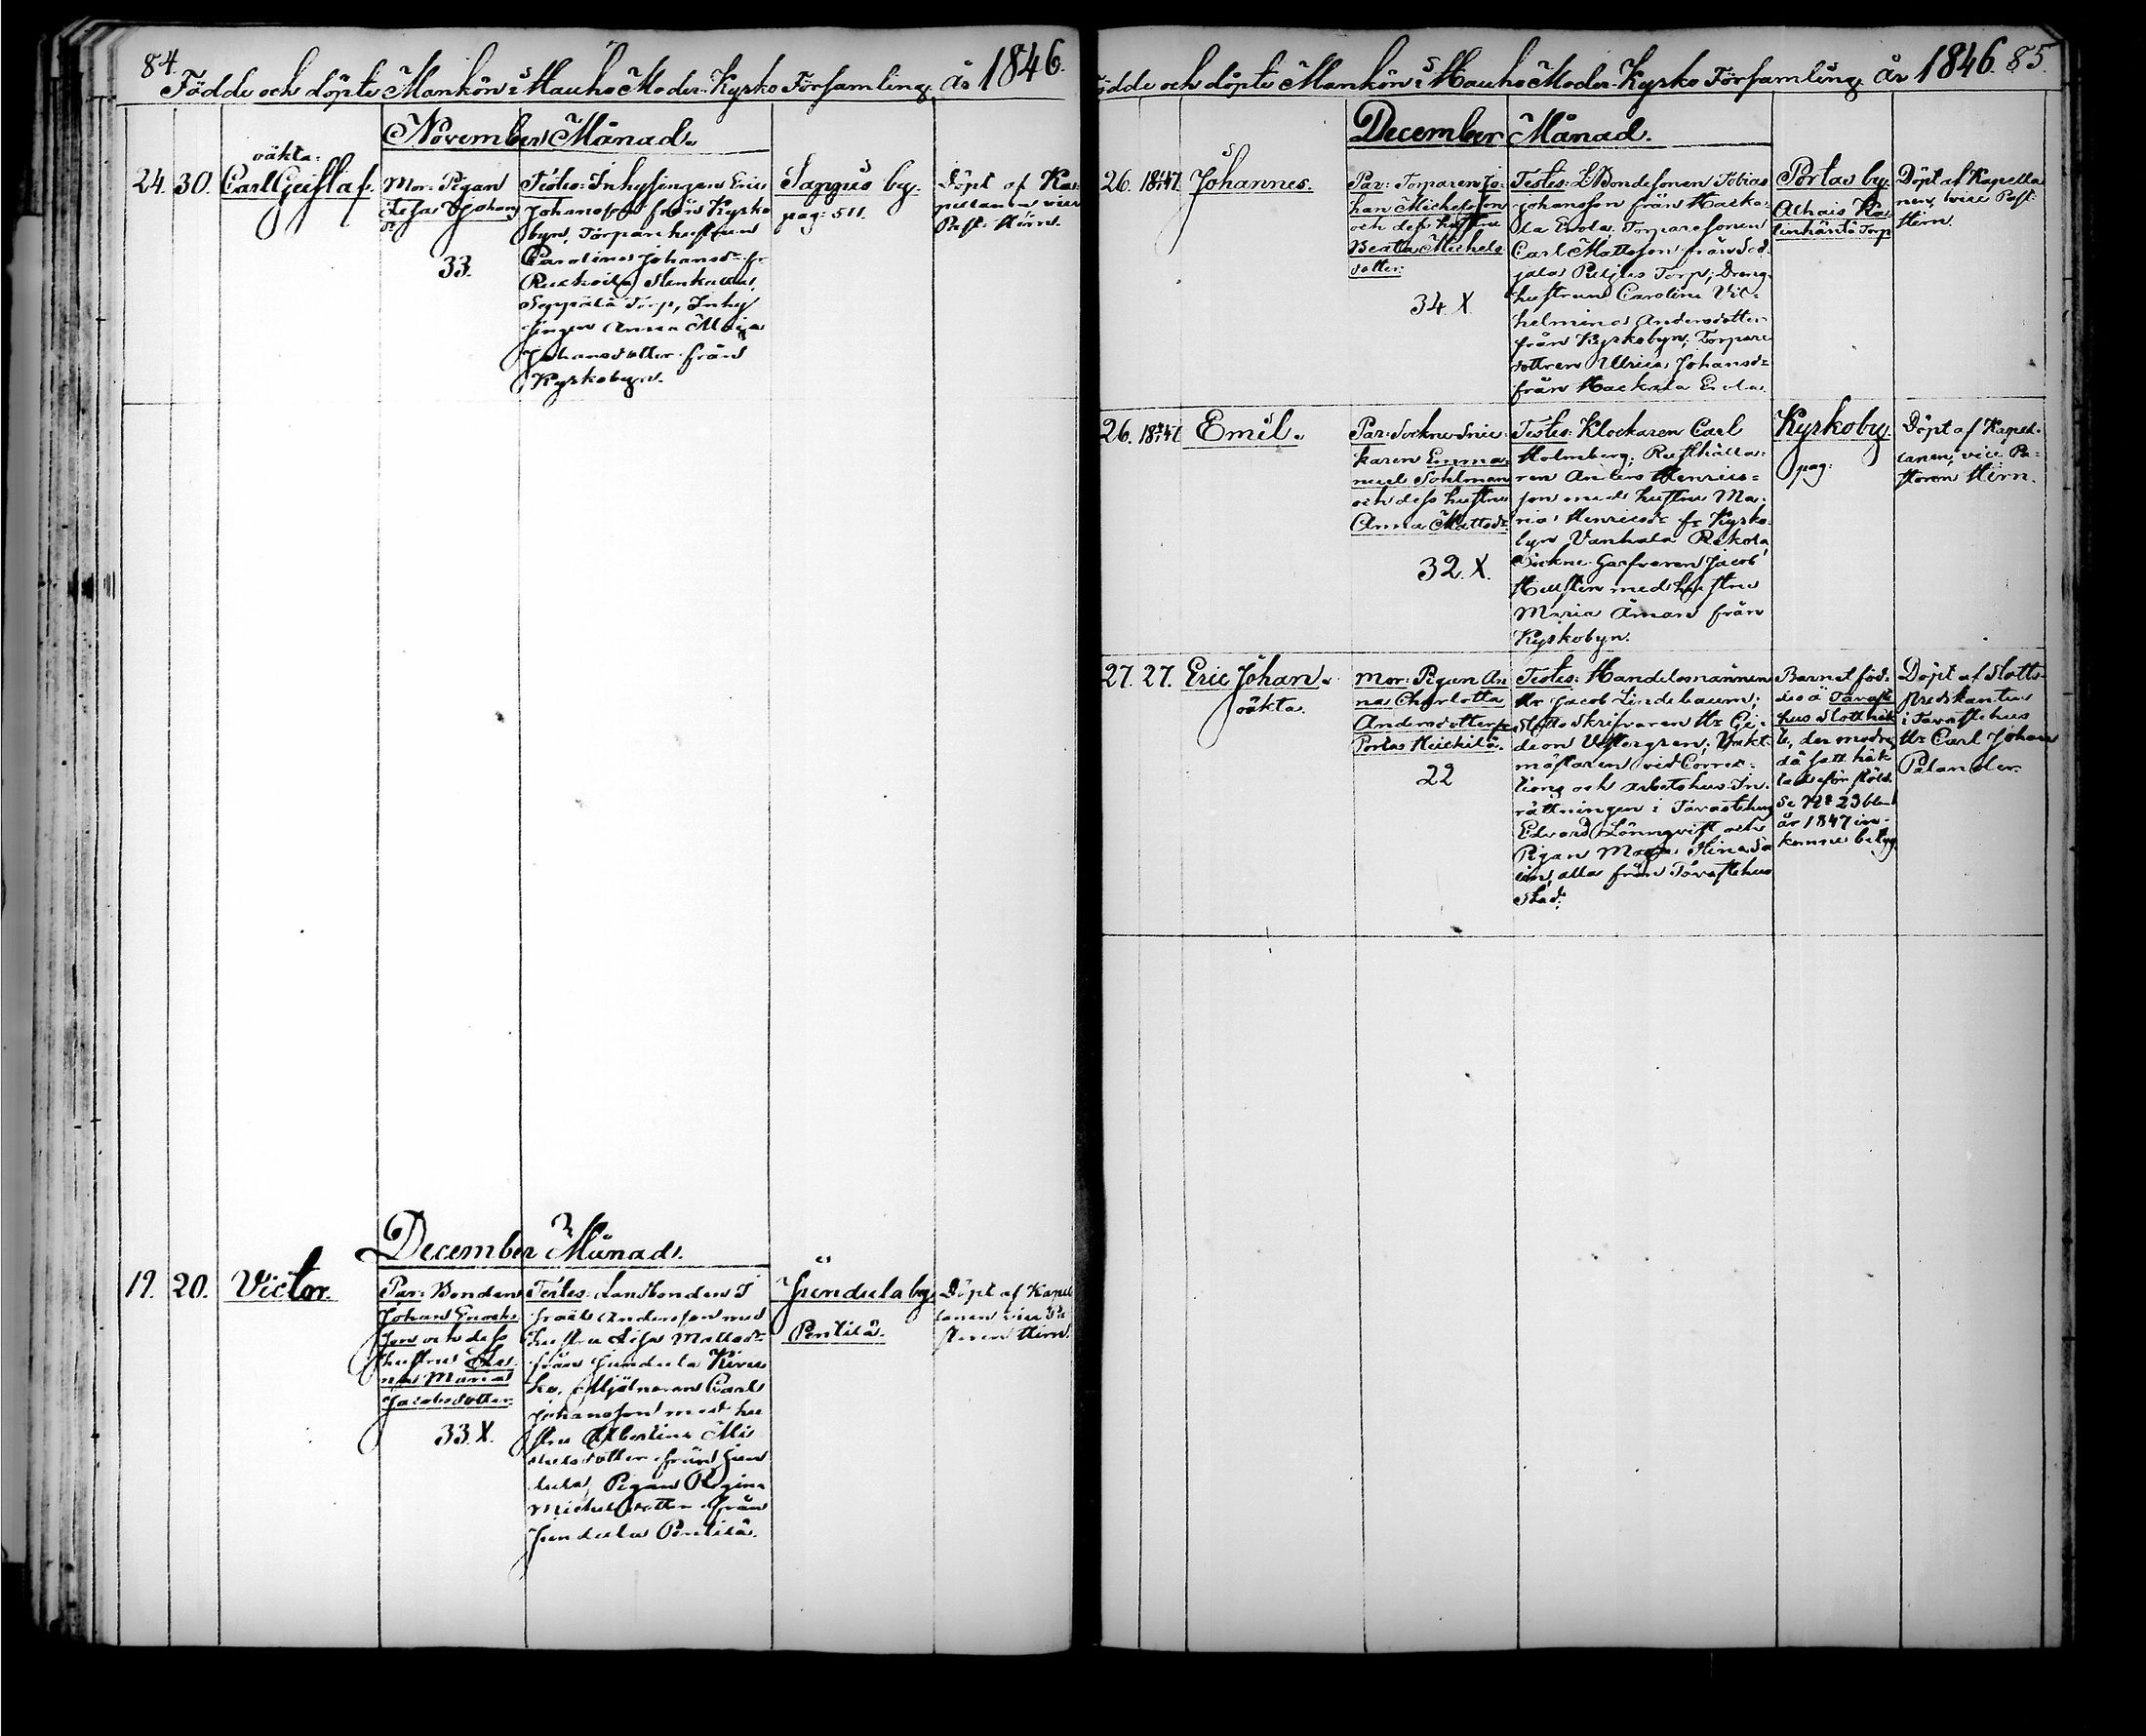 84.
Födde och döpte Mankön i Hauho Moder-Kyrko Församling år 1846.
November Månad.
24. 30.
oäkta:
Carl Gustaf.
Mor: Pigan
Johans
33.
Testes: Inhysingen Eric
Johansson från Kyrko
byn, Torpare hustrun
Carolina Johansdr fr
Seppälä Torp, Inhy
singen Anna Maja
Johansdotter från
Kyrkobyn.
Sappus by.
pag: 511.
Döpt af Ka
pellanen vice
Past: Hirn.
December Månad.
19. 20. Victor.
Par: Bonden
Johan
son och dess
hustru
Maria
Jacobsdotter.
33. X.
Testes: Landbonden I
sraël Andersson med
hustru Lisa Mattsdr
från Jundula
Mjölnaren Carl
Johansson med hu
stru Albertina Mi
chelsdotter från Jun
dula, Pigan Regina
Michelsdotter från
Jundula Penttilä.
Jundula by
Penttilä.
Döpt af Kapel
lanen vice Pa
storen Hirn.
Födde och döpte Mankön i Hauho Moder-Kyrko Församling år 1846. 85.
December Månad.
26. Johannes.
Par: Torparen Jo
han Michelsson
och dess hustru
Beata Michels
dotter.
34. X.
Testes: Bondesonen Tobias
Johansson från Hacka
la Erola, Torparesonen
Carl Mattsson från
Torp; Dreng
hustrun Carolina Vil
helmina Andersdotter
från Kyrkobyn; Torpare
dottren Ulrica Johansdr
från Hackala Erola.
Portas by.
Torp
Döpt af Kapella
nen, vice Past:
Hirn.
26. Emil.
Par: Sockne Snic
karen Emma
nuel Sohlman
och dess hustru
Anna Mattsdr
32. X.
Testes: Klockaren Carl
Holmberg; Rusthålla
ren Anders Henrics
son med hustru Ma
ria Henricsdr fr Kyrko
byn Vanhala
Sockne Garfvaren Jacob
med hustru
Maria Åman från
Kyrkobyn.
Kyrkoby
pag:
Döpt af Kapel
lanen, vice Pa
storen Hirn.
27. 27. Eric Johan.
oäkta.
Mor: Pigan An
na Charlotta
Andersdotter fr
Portas Heickilä.
22
Testes: Handelsmannen
Hr Jacob Lindebaum;
Slotts Skrifvaren Hr Gi
deon Vestergren; Vakt
mästaren vid Correc
tions och arbetshus In
rättningen i Tavastehus
Edvard Lönnqvist och
Pigan Maja Stina
alla från Tavastehus
Stad.
Barnet föd
des å Tavaste
hus Slottshäk
te, der modren
då satt häk
tad för stöld.
Se No 23 bland
år 1847 in
komne betyg.
Döpt af Slotts
Predikanten
i Tavastehus
Hr Carl Johan
Palander.